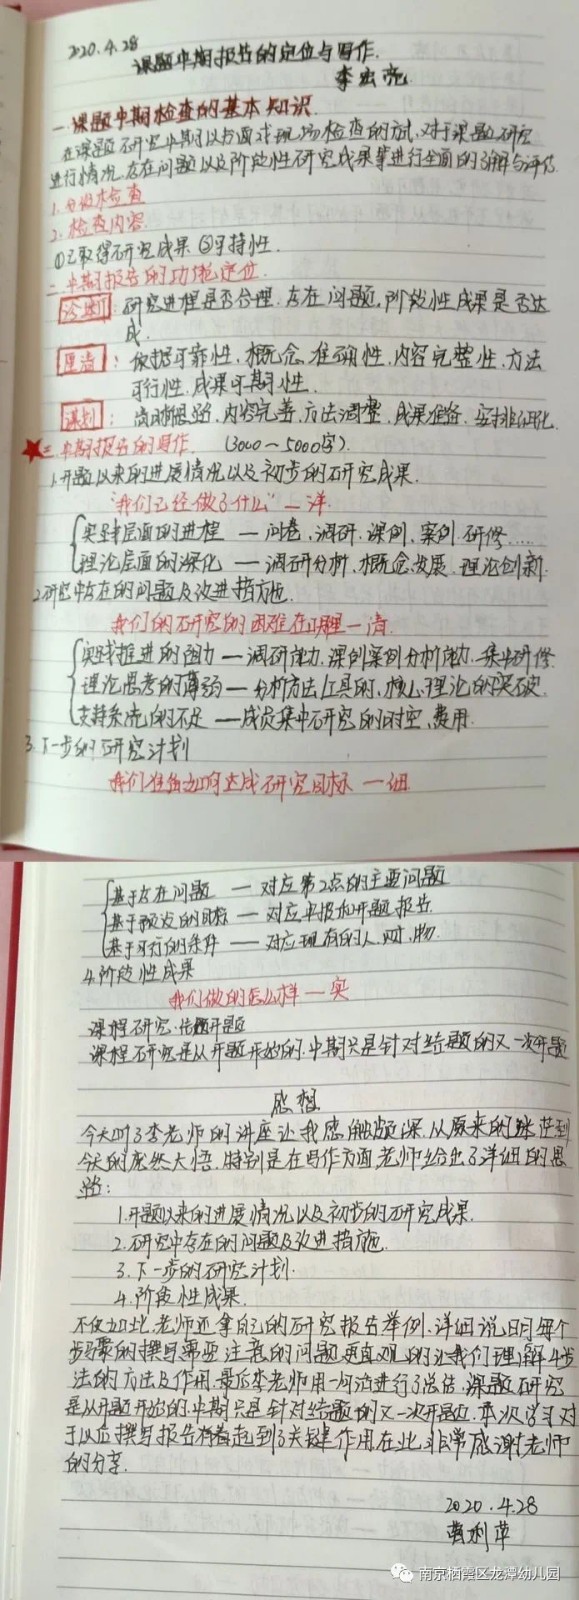 2020.4.28
课题中期报告的定位与写作.
李宏亮
一.课题中期检查的基本知识.
在课题研究中期以书面或现场检查的方式,对于课题研究
进行情况,存在问题以及阶段性研究成果等进行全面的了解与评估.
1.分级检查
2.检查内容
①已取得研究成果 ②可持性.
二.中期报告的功能定位.
诊断:研究进程是否合理.存在问题,阶段性成果是否达
成.
厘清:依据可靠性,概念准确性,内容完整性,方法
可行性,成果可期性.
谋划:内容完善,方法调整,成果准备.安排细化
三.中期报告的写作. (3000~5000字).
1.开题以来的进展情况以及初步的研究成果.
"我们已经做了什么"—详.
实践层面的进程 — 问卷,调研,课例,案例.研修……
理论层面的深化 — 调研分析,概念发展,理论创新.
2.研究中存在的问题及改进措施.
我们的研究的困难在哪里—清.
实践推进的困力—调研能力.课例案例分析能力.集中研修.
理论思考的薄弱—分析方法/工具的,核心理论的突破.
支持系统的不足—成员集中研究的时空、费用.
3.下一步的研究计划
我们准备如何达成研究目标 —细.
基于存在问题 — 对应第2点的主要问题
基于预设的目标 — 对应申报和开题报告.
基于可行的条件 — 对应现有的人.财.物.
4.阶段性成果
我们做的怎么样—实
课程研究:结题开题
课程研究是从开题开始的.中期只是针对结题的又一次开题
感想
今天听了李老师的讲座让我感触颇深.从原来的迷茫到
今天的庞然大悟.特别是在写作方面,老师给出了详细的思
路:
1.开题以来的进展情况以及初步的研究成果.
2.研究中存在的问题及改进措施.
3.下一步的研究计划.
4.阶段性成果.
不仅如此,老师还拿自己的研究报告举例.详细说明每个
步骤的撰写需要注意的问题.更直观的让我们理解4步
法的方法及作用.最后李老师用一句话进行了总结.课题研究
是从开题开始的.中期只是针对结题的又一次开题.本次学习对
于以后撰写报告有着起到了关键作用.在此,非常感谢老师
的分享.
2020.4.28
南京栖霞区龙潭幼儿园